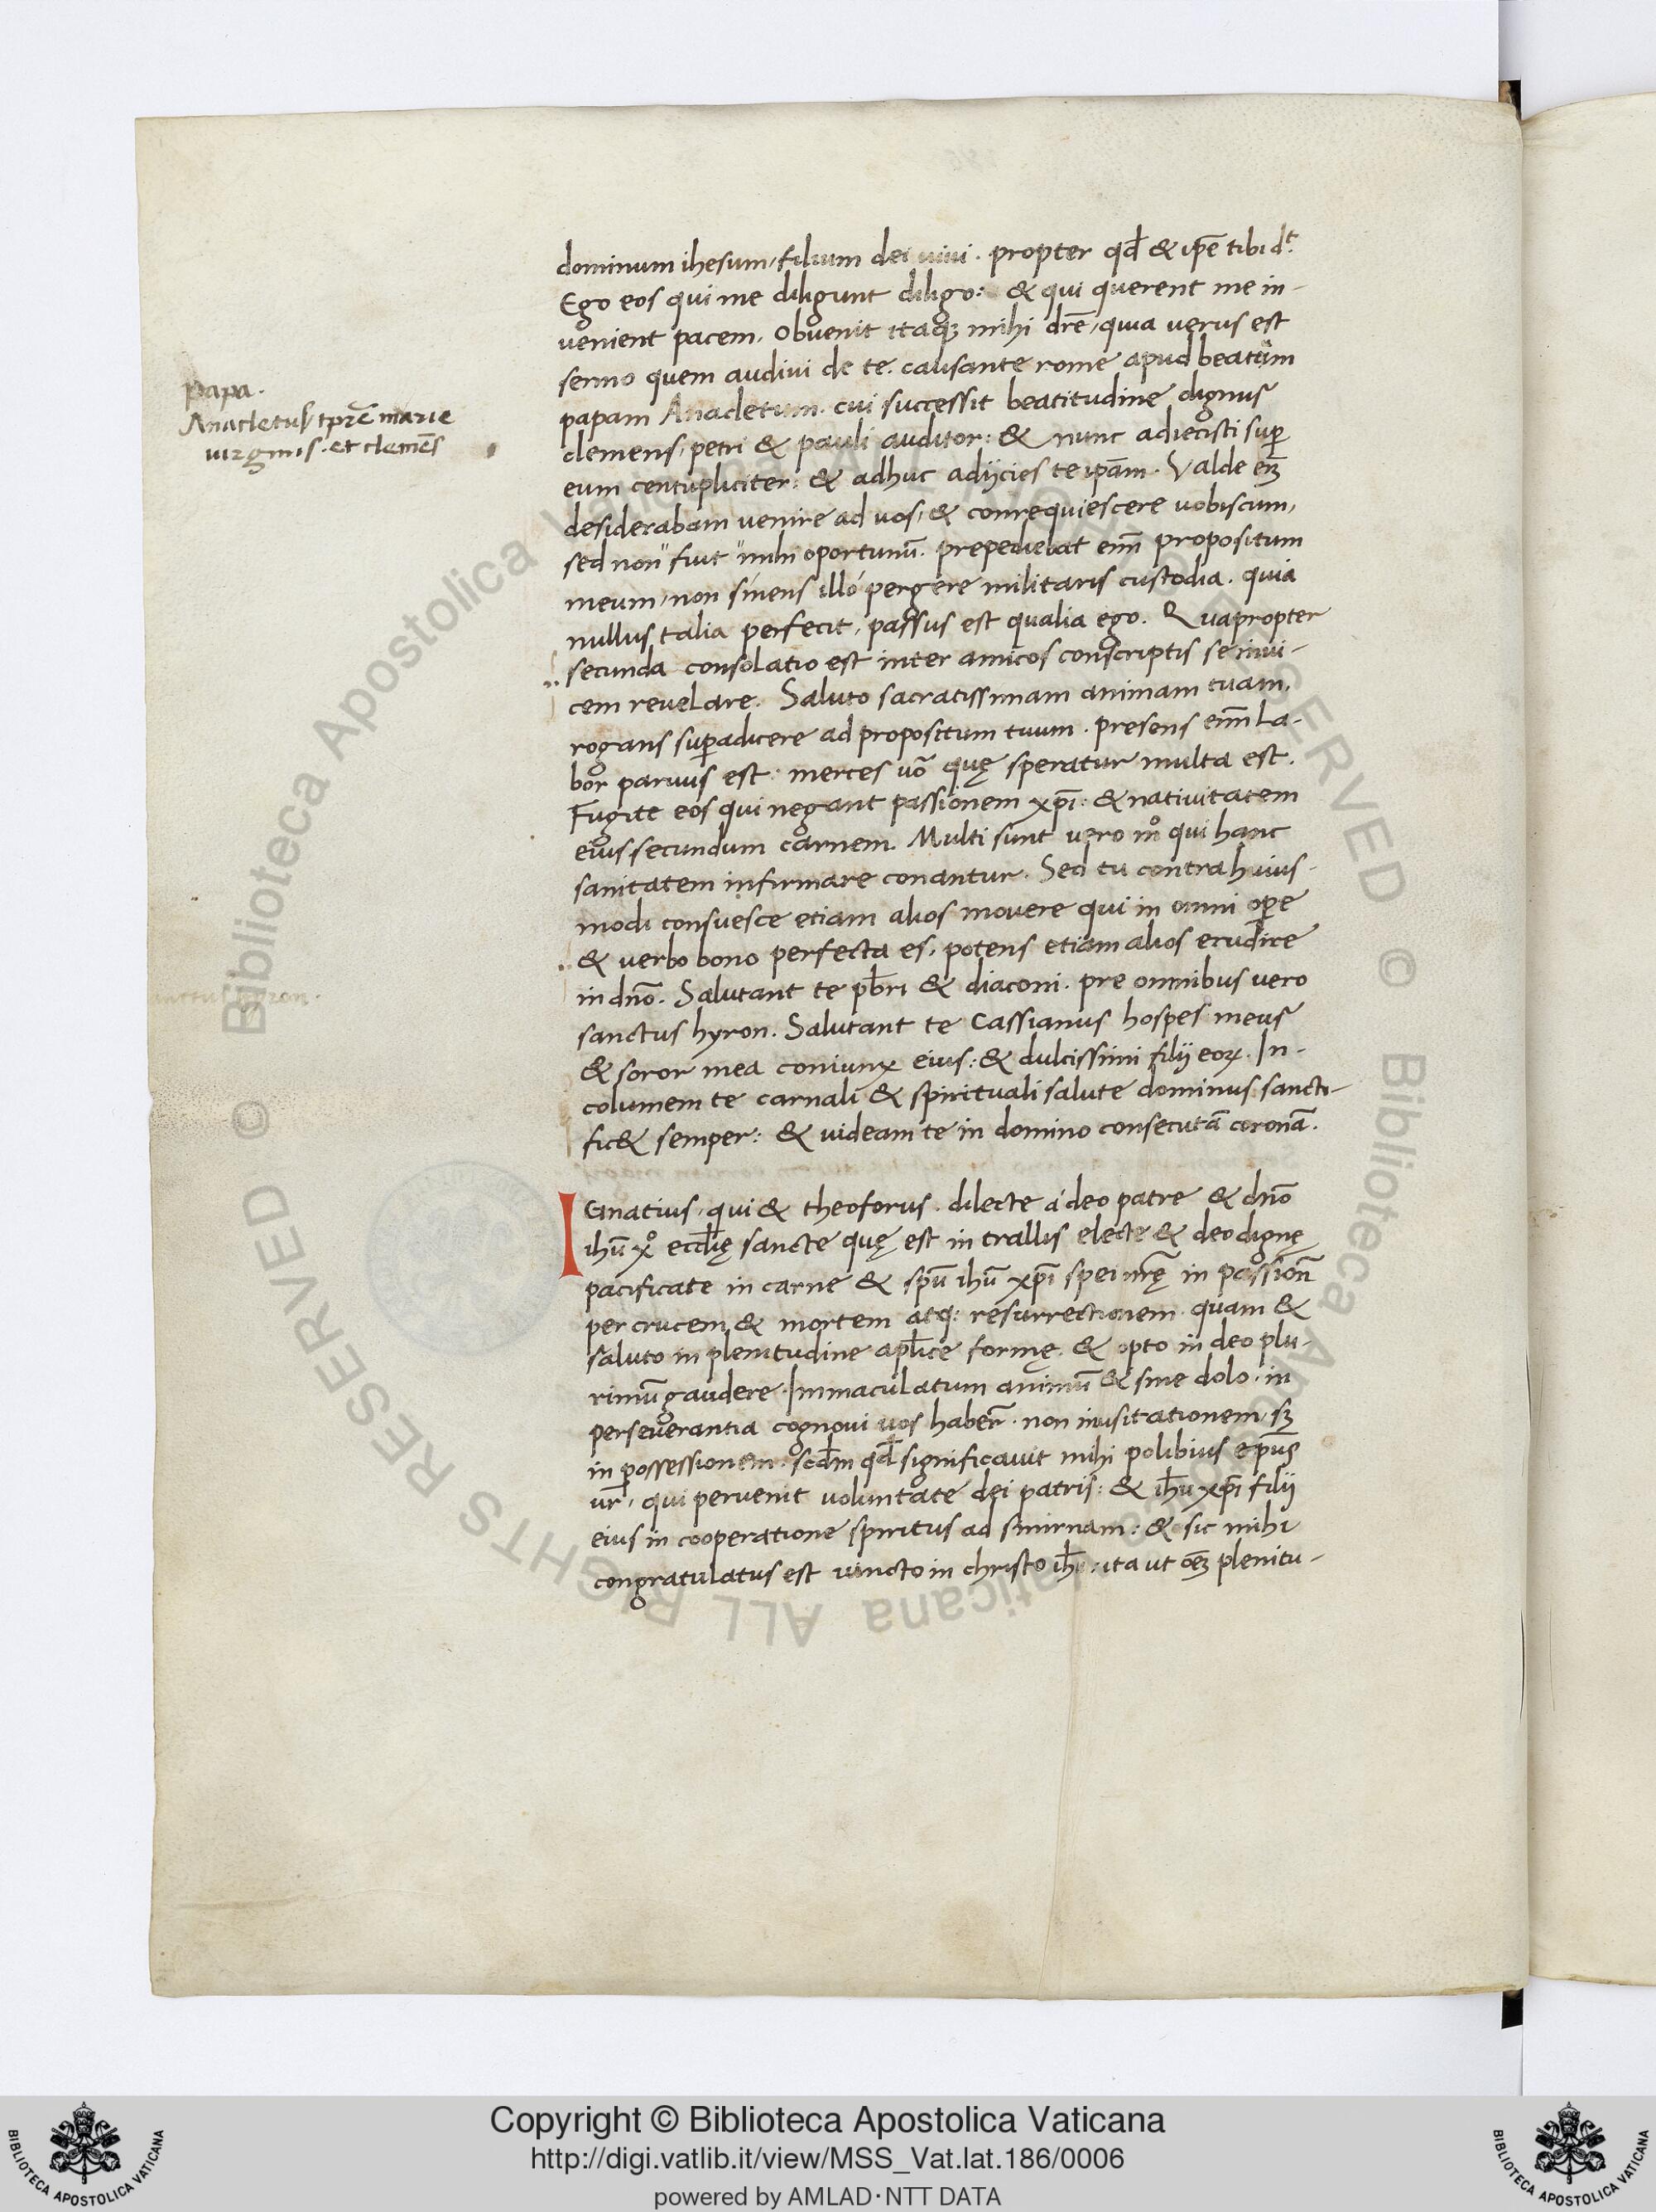 dominum ihesum, filium dei uiui. propter qd̄ & ip̄e tibi dt.
Ego eos qui me diligunt diligo: & qui querent me in-
uenient pacem. Obuenit itaq; mihi drē, quia uerus est
sermo quem audiui de te. causante rome apud beatum
papam Anacletum. cui successit beatitudine dignus
clemens, petri & pauli auditor: & nunc adiecisti suꝑ
eum centupliciter: & adhuc adijcies te ip̄am. Valde eīz
desiderabam uenire ad uos, & conrequiescere uobiscum,
sed non fuit mihi oportunū. prepediebat enī propositum
meum, non sinens illo pergere militaris custodia. quia
nullus talia perfecit, passus est qualia ego. Quapropter
secunda consolatio est inter amicos conscriptis se inui-
cem reuelare. Saluto sacratissimam animam tuam,
rogans suꝑadicere ad propositum tuum. presens enī la-
bor paruus est: merces uō quę speratur multa est.
Fugite eos qui negant passionem xp̄i: & natiuitatem
eius secundum carnem. Multi sunt uero mº qui hanc
sanitatem infirmare conantur. Sed tu contra huius-
modi consuesce etiam alios mouere qui in omni oꝑe
& uerbo bono perfecta es, potens etiam alios erudire
in dn̄o. Salutant te pb̄ri & diaconi. pre omnibus uero
sanctus hyron. Salutant te Cassianus hospes meus
& soror mea coniunx eius: & dulcissimi filij eoꝝ. In-
columem te carnali & spirituali salute dominus sancti-
fic& semper: & uideam te in domino consecutā coronā.
IGnatius, qui & theoforus. dilecte a deo patre & dn̄o
ihū xº eccl̄ię sancte quę est in trallis electe & deo dignę
pacificate in carne & spū ihū xp̄i spei nr̄ę in passionē
per crucem & mortem atq; resurrectionem. quam &
saluto in plenitudine apl̄ice formę. & opto in deo plu-
rimū gaudere. Immaculatum animū & sine dolo. in
perseuerantia cognoui uos haberē. non inusitationem, sꝫ
in possessionem. scd̄m qd̄ significauit mihi polibius ep̄us
ur̄, qui peruenit uoluntate dei patris: & ih̄u xp̄i filij
eius in cooperatione spiritus ad smirnam: & sic mihi
congratulatus est uincto in christo ih̄u: ita ut oēꝫ plenitu-
papa.
Anacletus tp̄re marie
uirginis. et clemēs
sanctus hyron.
Copyright © Biblioteca Apostolica Vaticana
http://digi.vatlib.it/view/MSS_Vat.lat.186/0006
powered by AMLAD·NTT DATA
BIBLIOTECA APOSTOLICA VATICANA
BIBLIOTECA APOSTOLICA VATICANA
© Biblioteca Apostolica Vaticana ALL RIGHTS RESERVED © Biblioteca Apostolica Vaticana ALL RIGHTS RESERVED